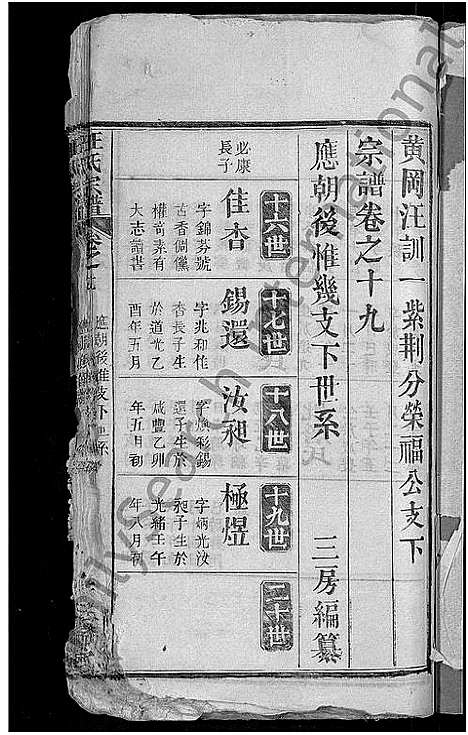 黄岡汪訓一紫荆分榮福公支下
宗譜卷之十九
應朝後惟幾支下世系　三房編纂
十六世
十七世
十八世
十九世
二十世
必康
長子
佳杏
字錦芬號
古香倜儻
權奇素有
大志詩書
錫還
字兆和佳
杏長子生
於道光乙
酉年五月
汝昶
字煥彩錫
還子生於
咸豐乙卯
年五月初
極煜
字炳光汝
昶子生於
光緒壬午
年八月初
汪氏宗譜